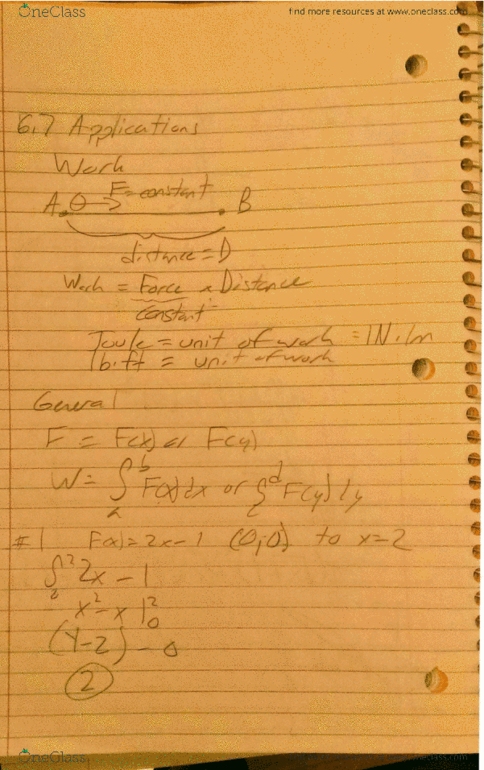 OneClass
find more resources at www.oneclass.com
6.7 Applications
Work
A θ → F=constant B
distance = D
Work = Force x Distance
constant
Joule = unit of work = 1N·1m
lb·ft = unit of work
General
F = F(x) or F(y)
W = ∫ₐᵇ F(x)dx or ∫ᶜᵈ F(y)dy
#1 F(x)=2x-1 (0,0) to x=2
∫² 2x-1
x²-x |²₀
(4-2) - 0
2
OneClass
www.oneclass.com